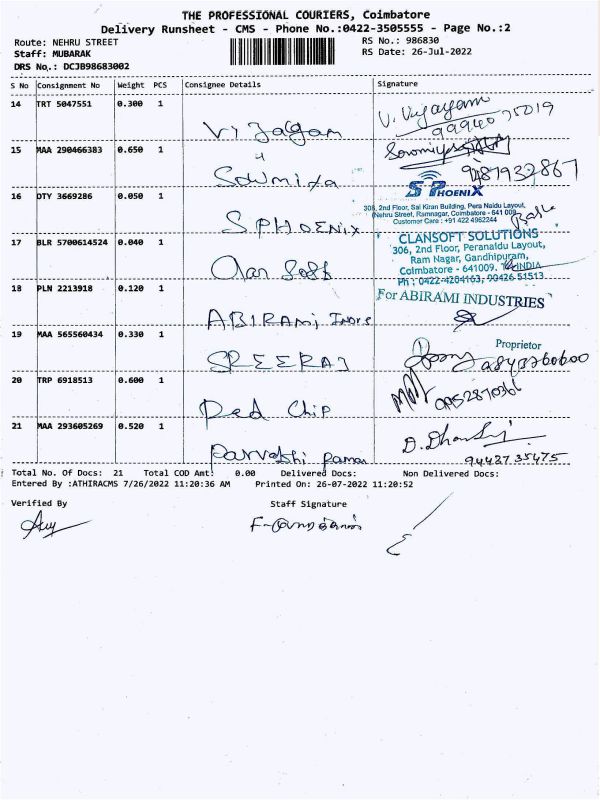 THE PROFESSIONAL COURIERS, Coimbatore
Delivery Runsheet - CMS - Phone No.:0422-3505555 - Page No.:2
Route: NEHRU STREET RS No.: 986830
Staff: MUBARAK RS Date: 26-Jul-2022
DRS No,: DCJB98683002
S No Consignment No Weight PCS Consignee Details Signature
14 TRT 5047551 0.300 1 Vijagan V. Vijayam
15 MAA 290466383 0.650 1 Sowmiya
16 DTY 3669286 0.050 1 S.PHOENIX S PHOENIX
306, 2nd Floor, Sai Kiran Building, Pera Naidu Layout,
Nehru Street, Ramnagar, Coimbatore - 641 009.
Customer Care : +91 422 4962244
17 BLR 5700614524 0.040 1 CLANSOFT SOLUTIONS
306, 2nd Floor, Peranaidu Layout,
Ram Nagar, Gandhipuram,
Coimbatore - 641009. INDIA
Ph : 0422-4204163, 90426 51513
18 PLN 2213918 0.120 1 ABIRAMI Inds For ABIRAMI INDUSTRIES
Proprietor
19 MAA 565560434 0.330 1 SREERAJ
20 TRP 6918513 0.600 1 Red Chip
21 MAA 293605269 0.520 1 Parvathi
9442735475
Total No. Of Docs: 21 Total COD Amt: 0.00 Delivered Docs: Non Delivered Docs:
Entered By :ATHIRACMS 7/26/2022 11:20:36 AM Printed On: 26-07-2022 11:20:52
Verified By Staff Signature